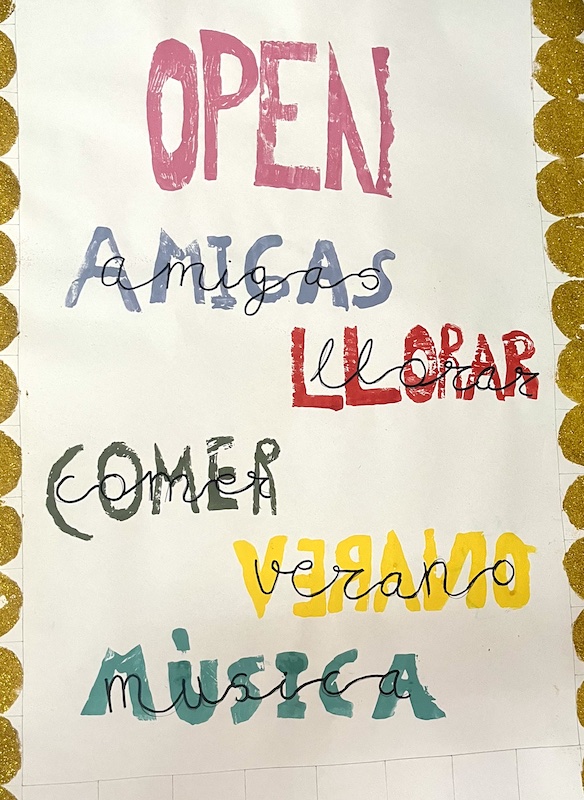 OPEN
AMIGAS
amigas
LLORAR
llorar
COMER
comer
VERANO
verano
MÚSICA
musica